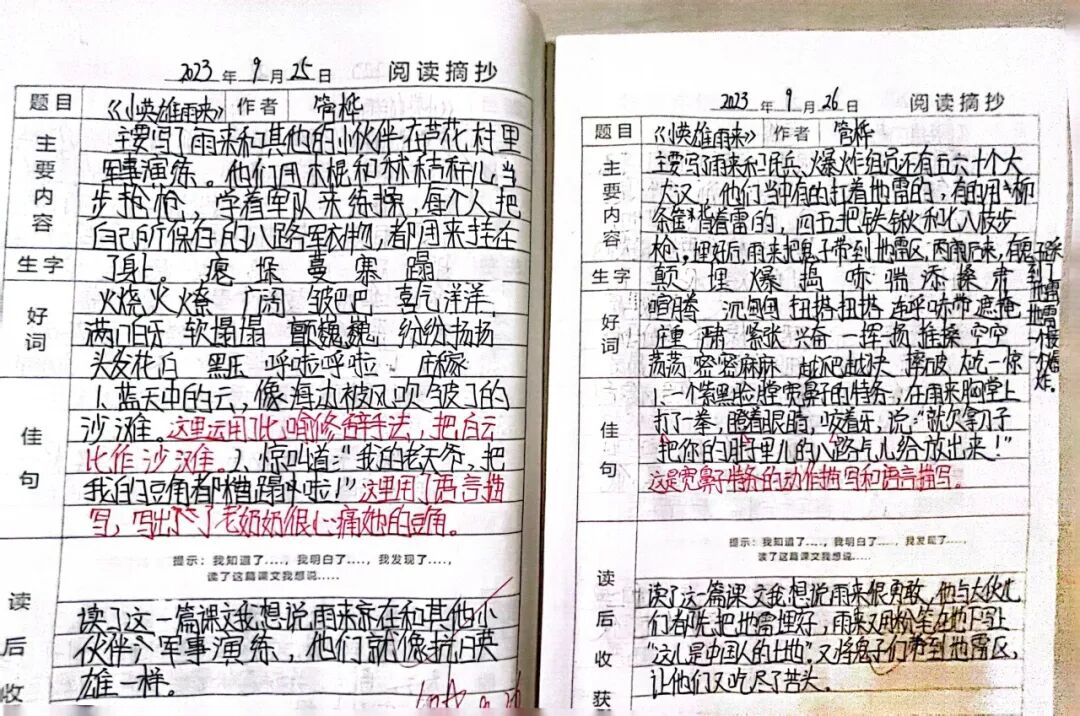 2023 年 9 月 25 日 阅读摘抄
题目 《小英雄雨来》 作者 管桦
主要内容
主要写了雨来和其他的小伙伴在芦花村里
军事演练。他们用木棍和林秸秆儿当
步枪,学着军队来练操,每个人把
自己所保存的八路军衣物,都用来挂在
了身上。
生字
瘪 垛 蔓 寨 蹋
好词
火烧火燎 广阔 皱巴巴 喜气洋洋
满口白牙 软塌塌 颤巍巍 纷纷扬扬
头发花白 黑压 呼啦呼啦 庄稼
佳句
1、蓝天中的白云,像海边被风吹皱了的
沙滩。这里运用了比喻修辞手法,把白云
比作沙滩。2、惊叫道:“我的老天爷,把
我的豆角都糟蹋啦!”这里用了语言描
写,写出了老奶奶很心痛她的豆角。
提示:我知道了……,我明白了……,我发现了……,
读了这篇课文我想说……
读后收
读了这一篇课文我想说雨来京在和其他小
伙伴军事演练,他们就像抗日英
雄一样。
2023 年 9 月 26 日 阅读摘抄
题目 《小英雄雨来》 作者 管桦
主要内容
主要写了雨来和民兵、爆炸组员还有五六十个大
大汉,他们当中有的打着地雷的,有的用柳
条筐背着雷的,四五把铁锹和七八枝步
枪,埋好后,雨来把鬼子带到地雷区,两雨后来,有鬼子踩
到了地雷,地雷一个接一个爆炸。
生字
颠 埋 爆 捣 哧 喘 添 搡 肃
好词
喧腾 沉甸甸 扭搭扭搭 连呼哧带 遮掩
庄重 严肃 紧张 兴奋 一挥 扬 推搡 空空
荡荡 密密麻麻 越爬越快 撑破 大吃一惊
佳句
1、一个紫黑脸膛宽鼻子的特务,在雨来胸堂上
打了一拳,瞪着眼睛,咬着牙,说:“就欠拿刀子
把你的肚子里儿的八路气儿给放出来!”
这是宽鼻子特务的动作描写和语言描写。
提示:我知道了……,我明白了……,我发现了……,
读了这篇课文我想说……
读后收获
读了这一篇课文我想说雨来很勇敢,他与大伙儿
们都先把地雷埋好,雨来又用粉笔在地下写上
“这儿是中国人的土地”。又将鬼子们带到地雷区,
让他们又吃尽了苦头。